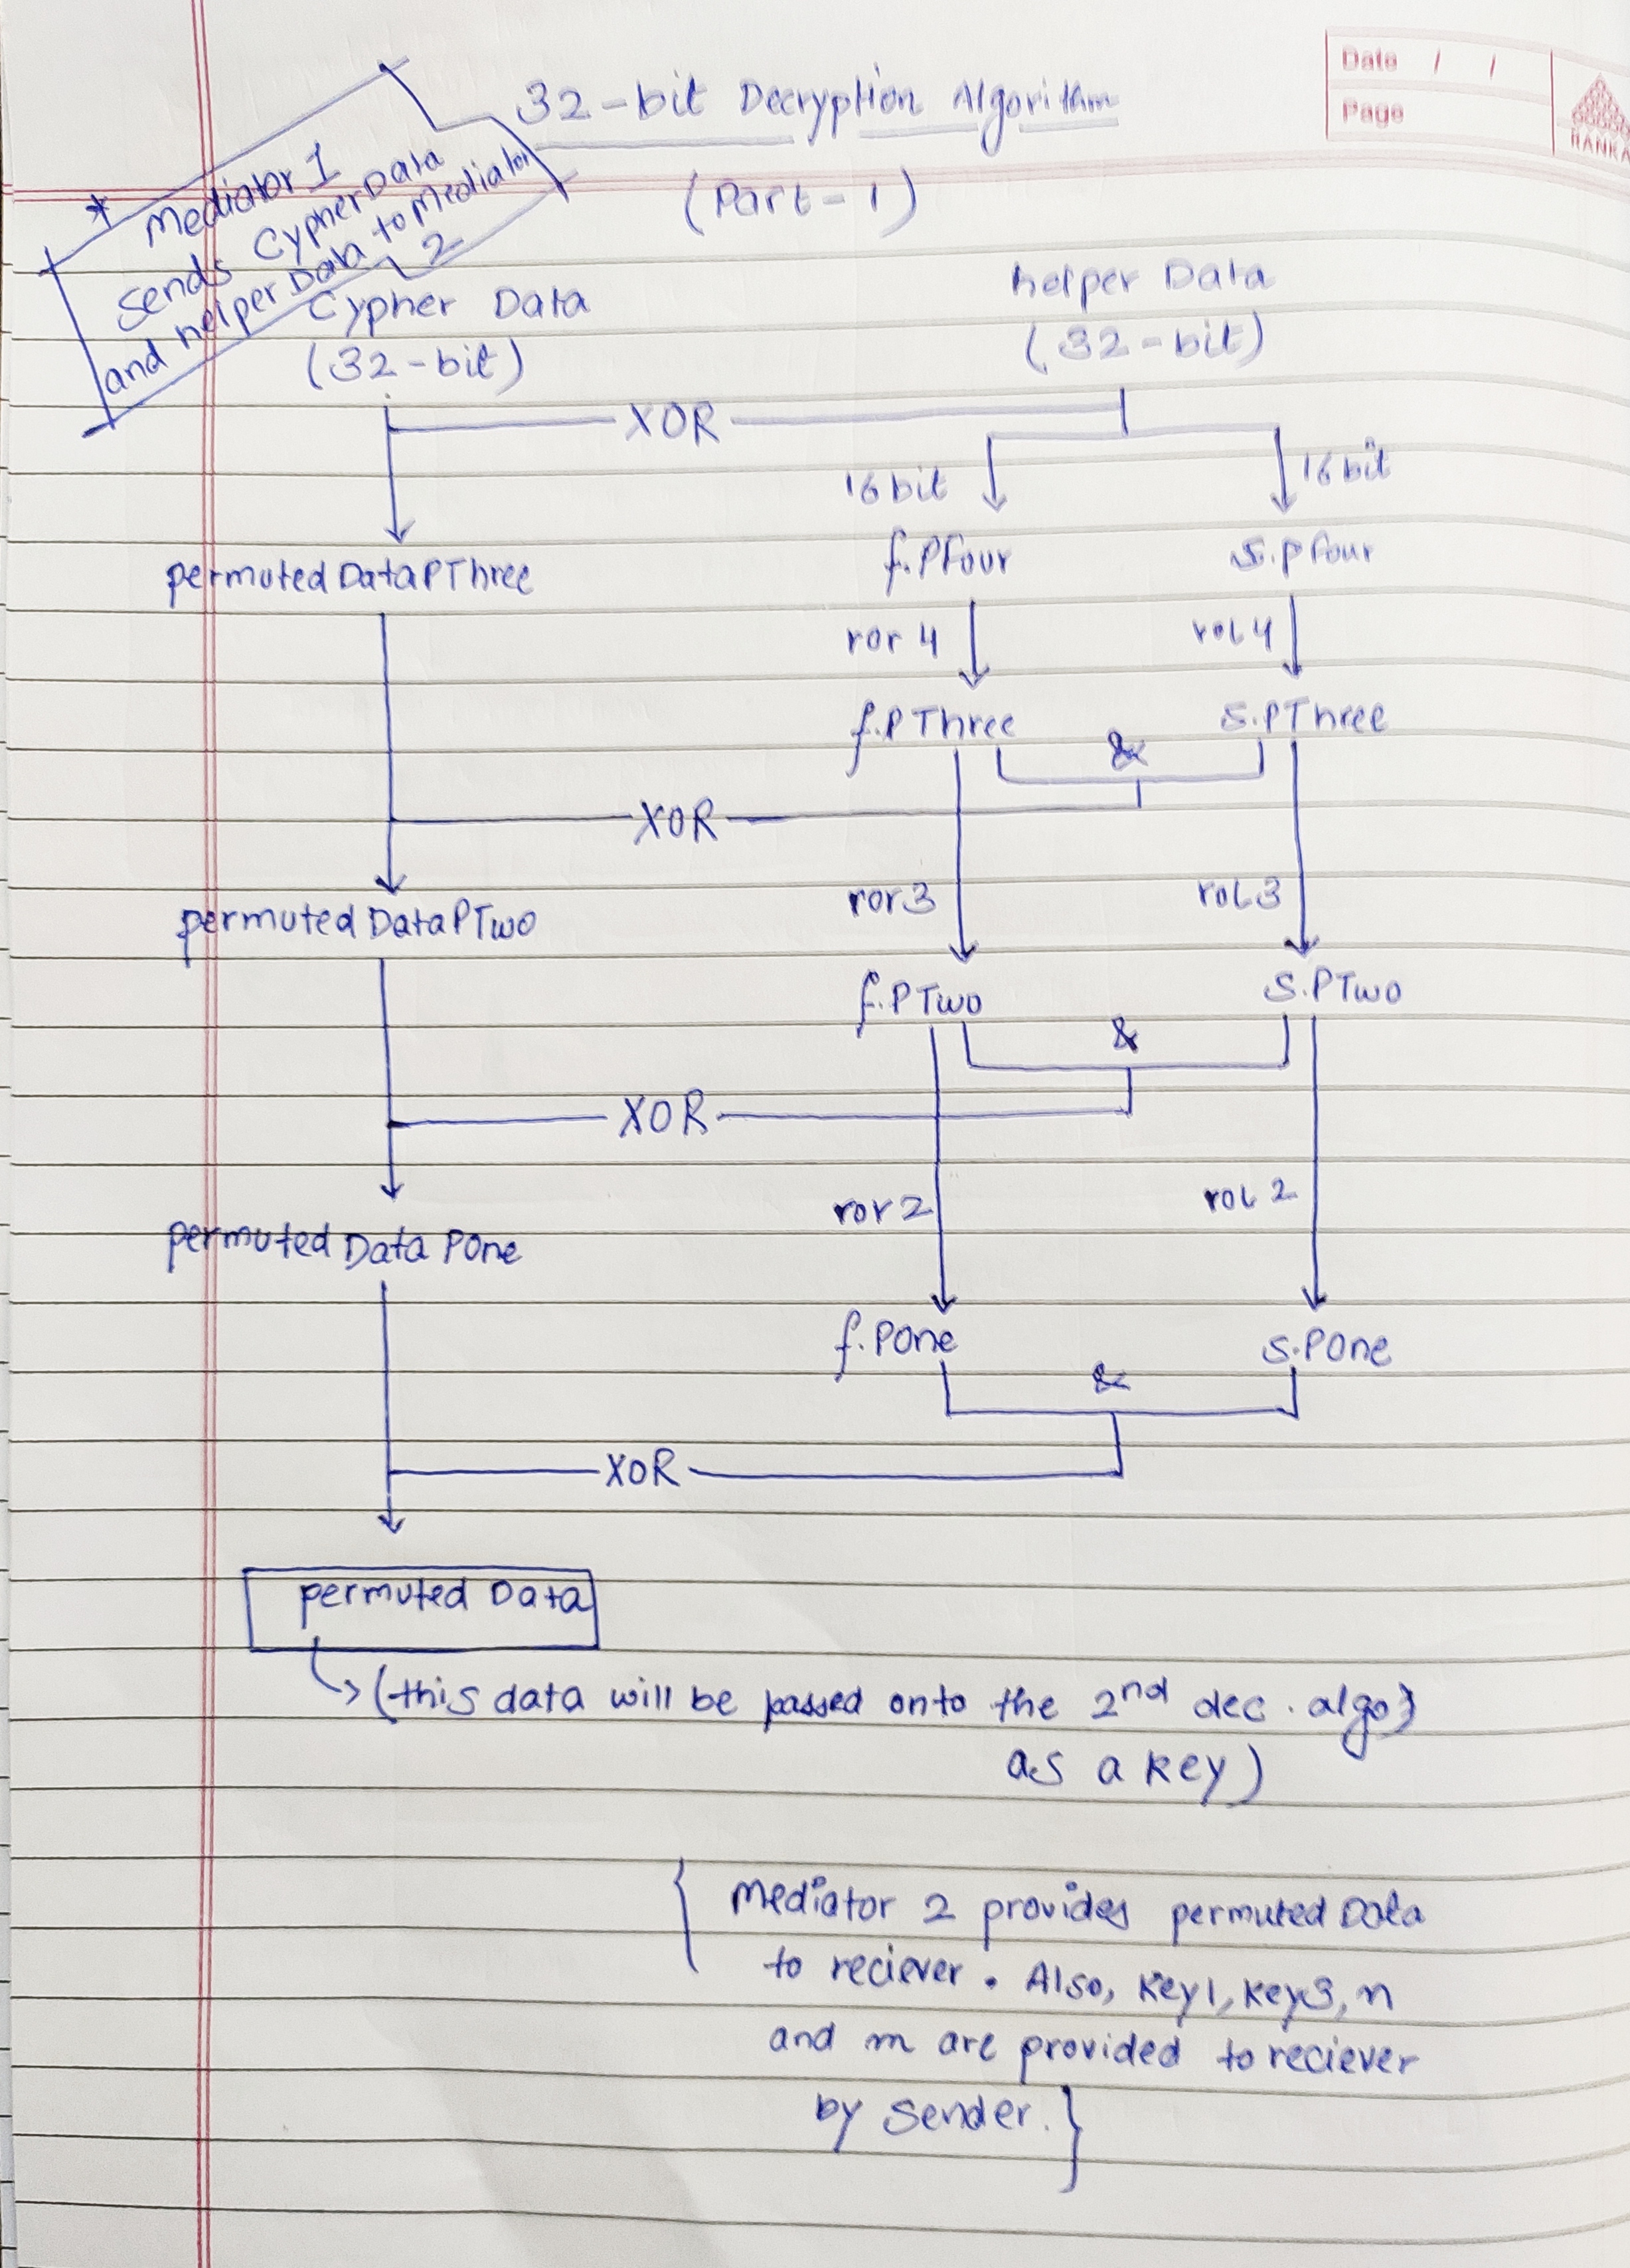 Date / /
Page
RANKA
32-bit Decryption Algorithm
(Part-1)
* Mediator 1
sends CypherData
and helper Data to Mediator
2
Cypher Data
(32-bit)
helper Data
(32-bit)
XOR
16 bit
16 bit
permuted DataPThree
f.PFour
s.pFour
ror 4
rol 4
f.PThree
s.PThree
&
XOR
ror 3
rol 3
permuted DataPTwo
f.PTwo
s.PTwo
&
XOR
ror 2
rol 2
permuted Data POne
f.POne
s.POne
&
XOR
permuted Data
(this data will be passed onto the 2nd dec. algo}
as a key)
{ Mediator 2 provides permuted Data
to reciever. Also, key1, key3, n
and m are provided to reciever
by sender. }